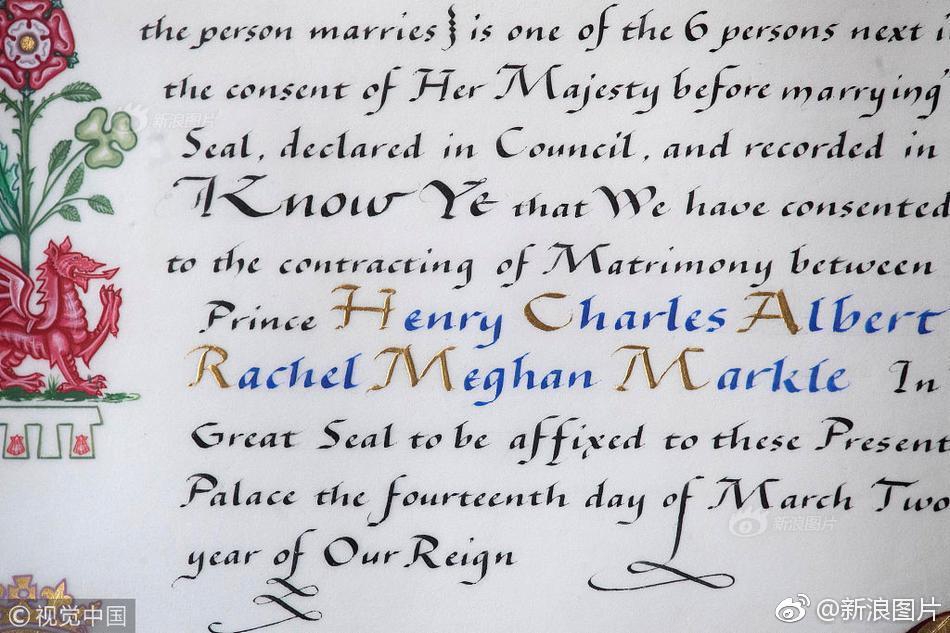 the person marries} is one of the 6 persons next i
the consent of Her Majesty before marrying
Seal, declared in Council, and recorded in
Know Ye that We have consented
to the contracting of Matrimony between
Prince Henry Charles Albert
Rachel Meghan Markle In
Great Seal to be affixed to these Present
Palace the fourteenth day of March Two
year of Our Reign
新浪图片
新浪图片
©视觉中国
@新浪图片